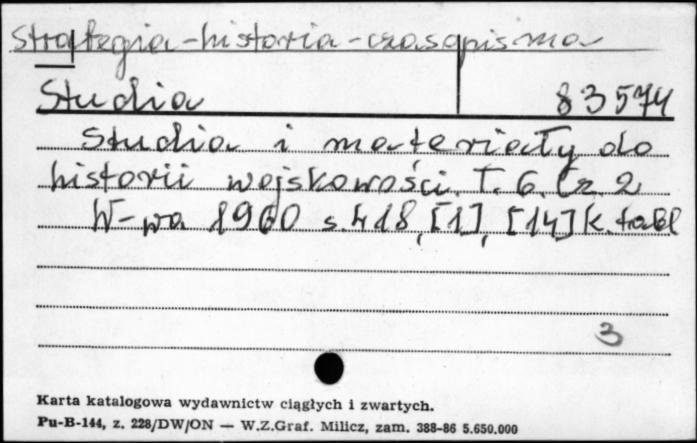 Strategia - historia - czasopisma
Studia 83574
Studia i materiały do
historii wojskowości. T. 6. Cz. 2
W-wa 1960 s. 418, [1], [14] k. tabl
3
Karta katalogowa wydawnictw ciągłych i zwartych.
Pu-B-144, z. 228/DW/ON — W.Z.Graf. Milicz, zam. 388-86 5.650.000